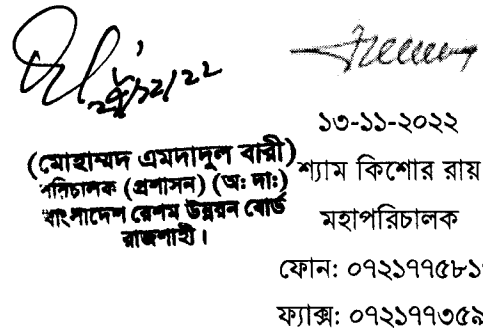 ২৮/১২/২২
(মোহাম্মদ এমদাদুল বারী)
পরিচালক (প্রশাসন) (অঃ দাঃ)
বাংলাদেশ রেশম উন্নয়ন বোর্ড
রাজশাহী।
১৩-১১-২০২২
শ্যাম কিশোর রায়
মহাপরিচালক
ফোন: ০৭২১৭৭৫৮১
ফ্যাক্স: ০৭২১৭৭৩৫৯